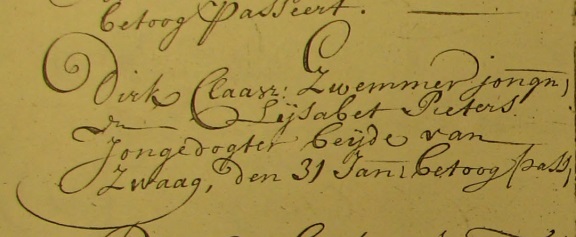 betoog Passeert.
Dirk Claasz: Zwemmer jongn,
en Lijsabet Pieters
Jongedogter beijde van
Zwaag, den 31 Jan: betoog pass,